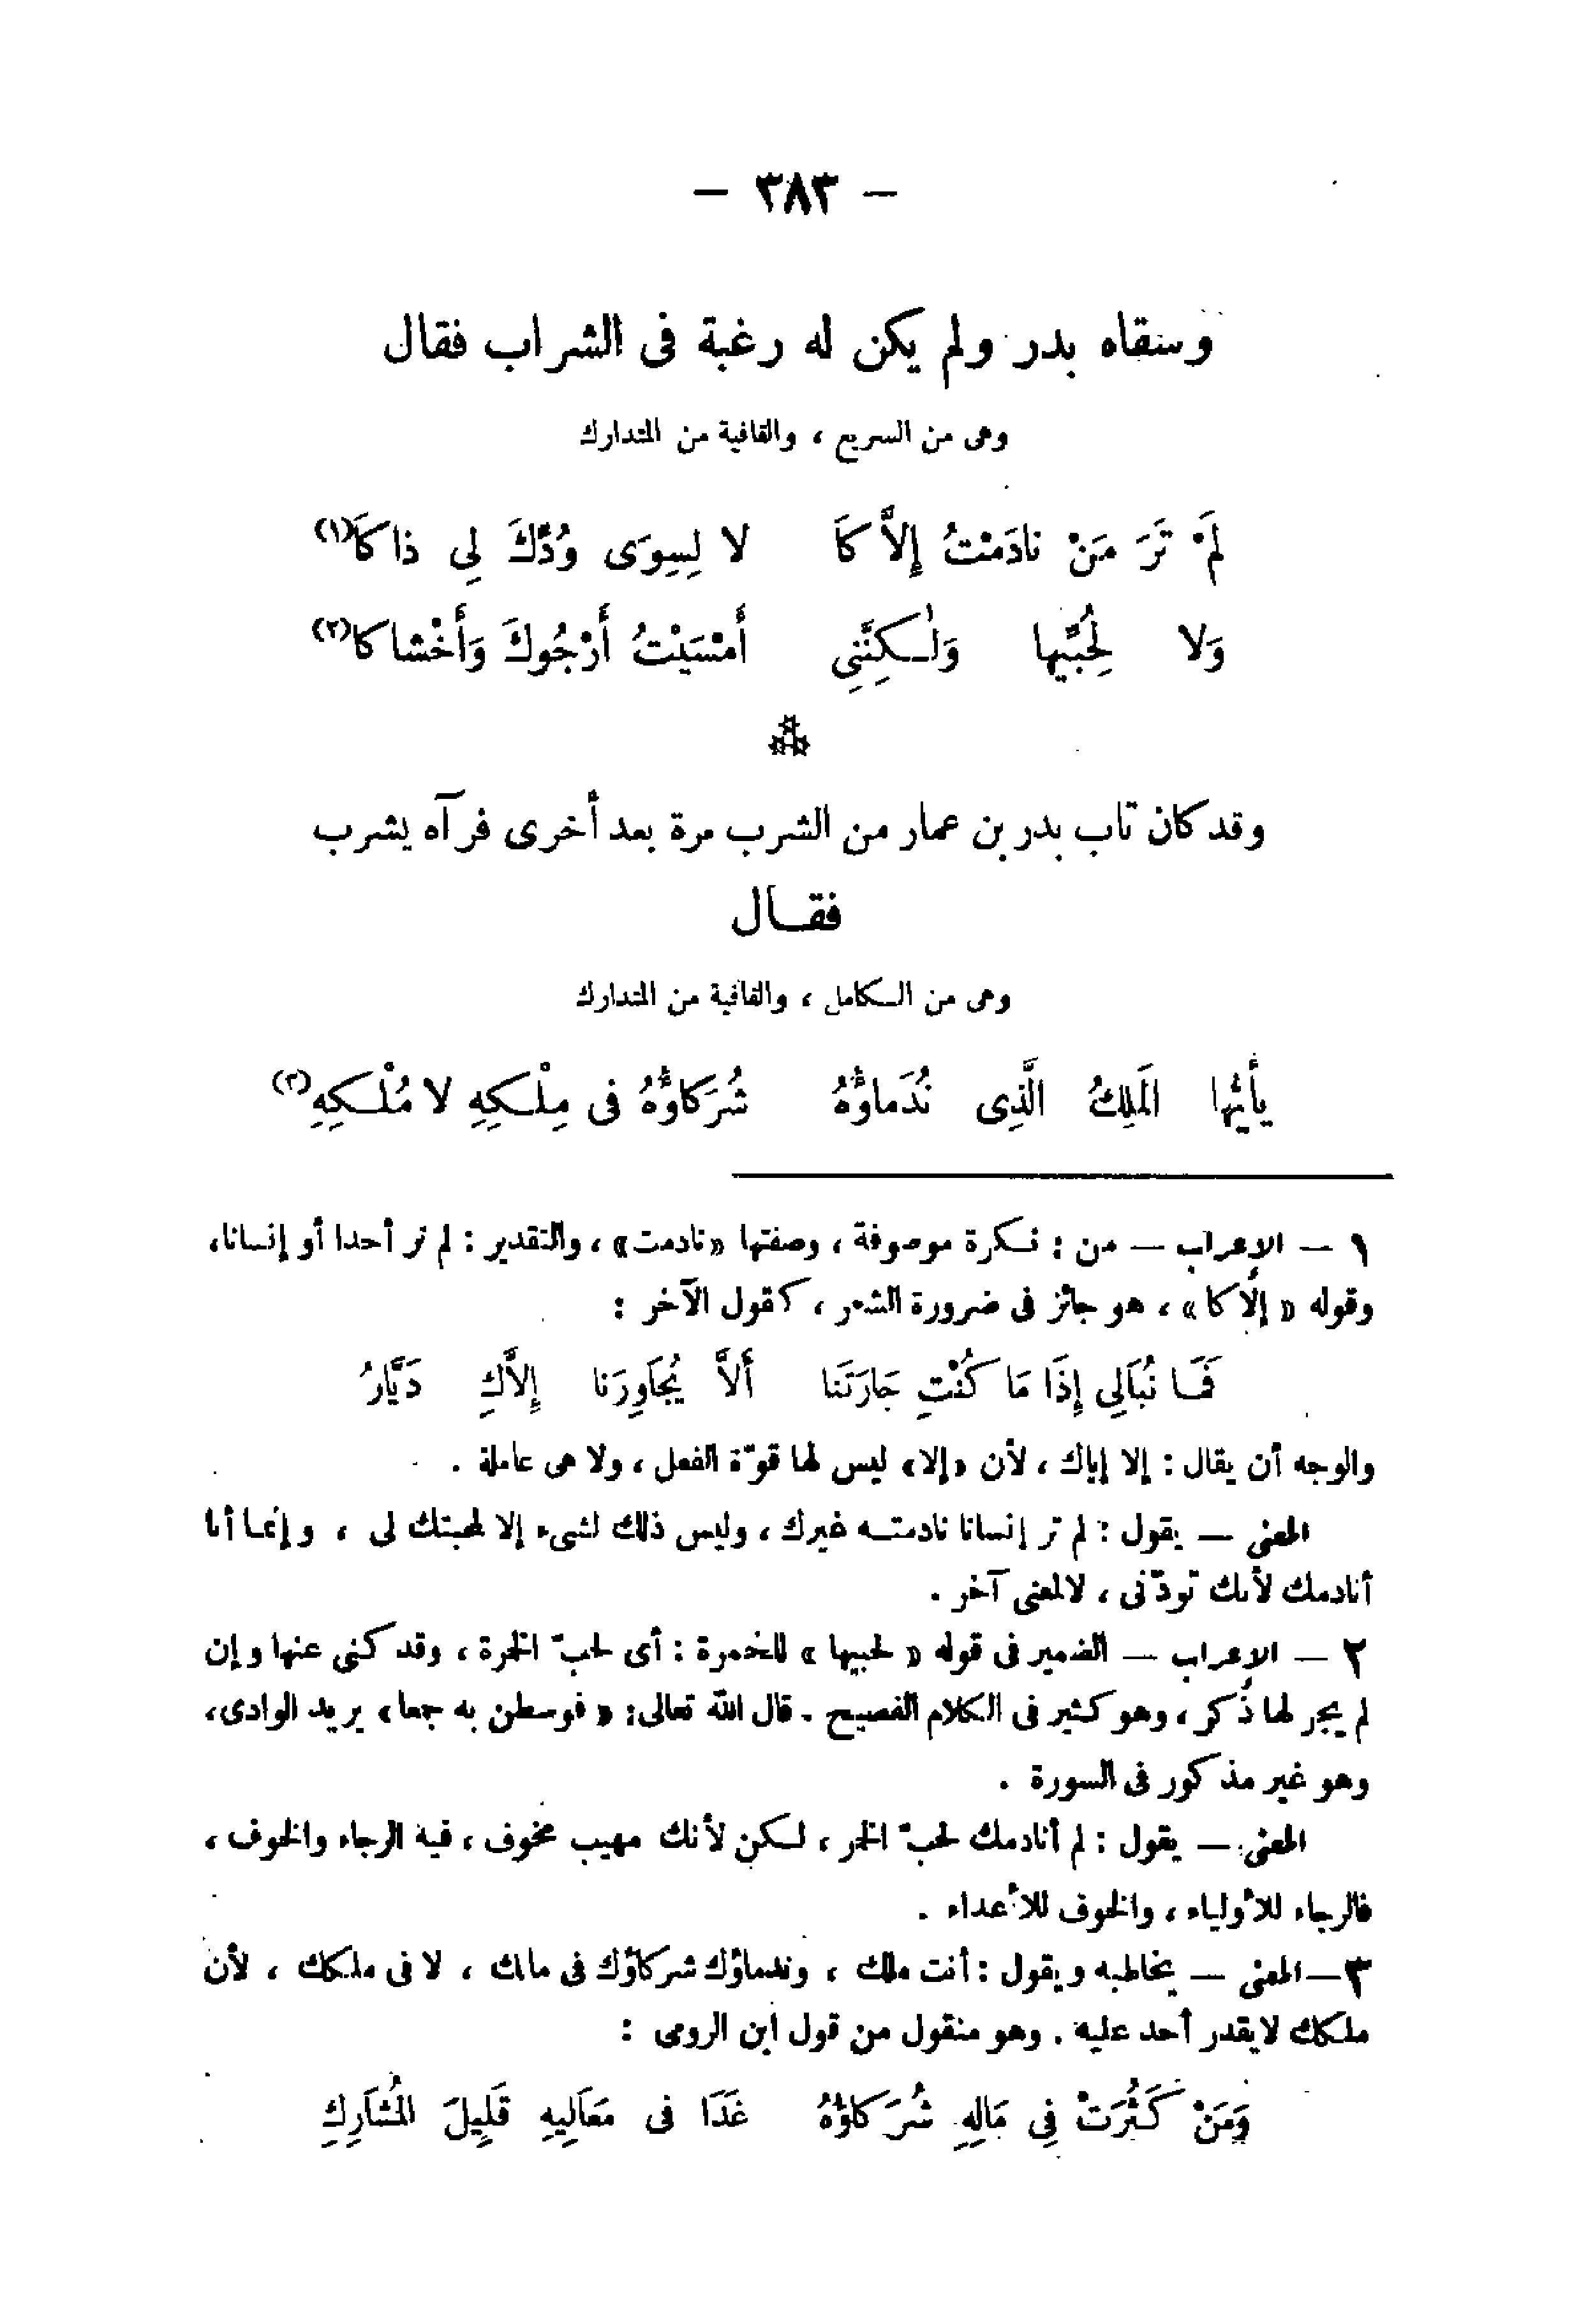 — ٣٨٣ —
وسقاه بدر ولم يكن له رغبة فى الشراب فقال
وهى من السريع ، والقافية من المتدارك
لَمْ تَرَ مَنْ نادَمْتُ إِلاَّ كَا لا لِسِوَى وُدِّكَ لِى ذاكَا(١)
وَلا لِحُبِّيها وَلٰكِنَّنِى أَمْسَيْتُ أَرْجُوكَ وَأَخْشاكا(٢)
***
وقد كان تاب بدر بن عمار من الشرب مرة بعد أخرى فرآه يشرب
فقـال
وهى من الـكامل ، والقافية من المتدارك
يأَيُّها المَلِكُ الَّذِى نُدَماوُّهُ شُرَكاوُّهُ فى مِلْـكِهِ لا مُلْـكِهِ(٣)
١ — الإعراب — من : نـكرة موصوفة ، وصفتها «نادمت» ، والتقدير : لم تر أحدا أو إنسانا،
وقوله « إلَّاكا» ، هو جائز فى ضرورة الشعر ، كقول الآخر :
فَمَـا نُبَالِى إِذَا مَا كُنْتِ جَارَتَنا أَلاَّ يُجَاوِرَنا إِلاَّكِ دَيَّارُ
والوجه أن يقال : إلا إياك ، لأن «إلا» ليس لها قوّة الفعل ، ولا هى عاملة .
المعنى — يقول : لم تر إنسانا نادمتـه غيرك ، وليس ذلك لشىء إلا لمحبتك لى ، وإنما أنا
أنادمك لأنك تودّنى ، لالمعنى آخر .
٢ — الإعراب — الضمير فى قوله « لحبيها » للخمرة : أى لحبّ الخمرة ، وقد كنى عنها وإن
لم يجر لها ذُكر ، وهو كثير فى الكلام الفصيح . قال الله تعالى: « فوسطن به جمعا» يريد الوادى،
وهو غير مذكور فى السورة .
المعنى — يقول : لم أنادمك لحبّ الخمر ، لـكن لأنك مهيب مخوف ، فيه الرجاء والخوف ،
فالرجاء للأولياء ، والخوف للأعداء .
٣—المعنى — يخاطبه ويقول : أنت ملك ، وندماؤك شركاؤك فى مالك ، لا فى ملكك ، لأن
ملكك لايقدر أحد عليه . وهو منقول من قول ابن الرومى :
وَمَنْ كَثُرَتْ فِى مَالِهِ شُرَكاؤُهُ غَدَا فى مَعَالِيهِ قَلِيلَ المُشَارِكِ